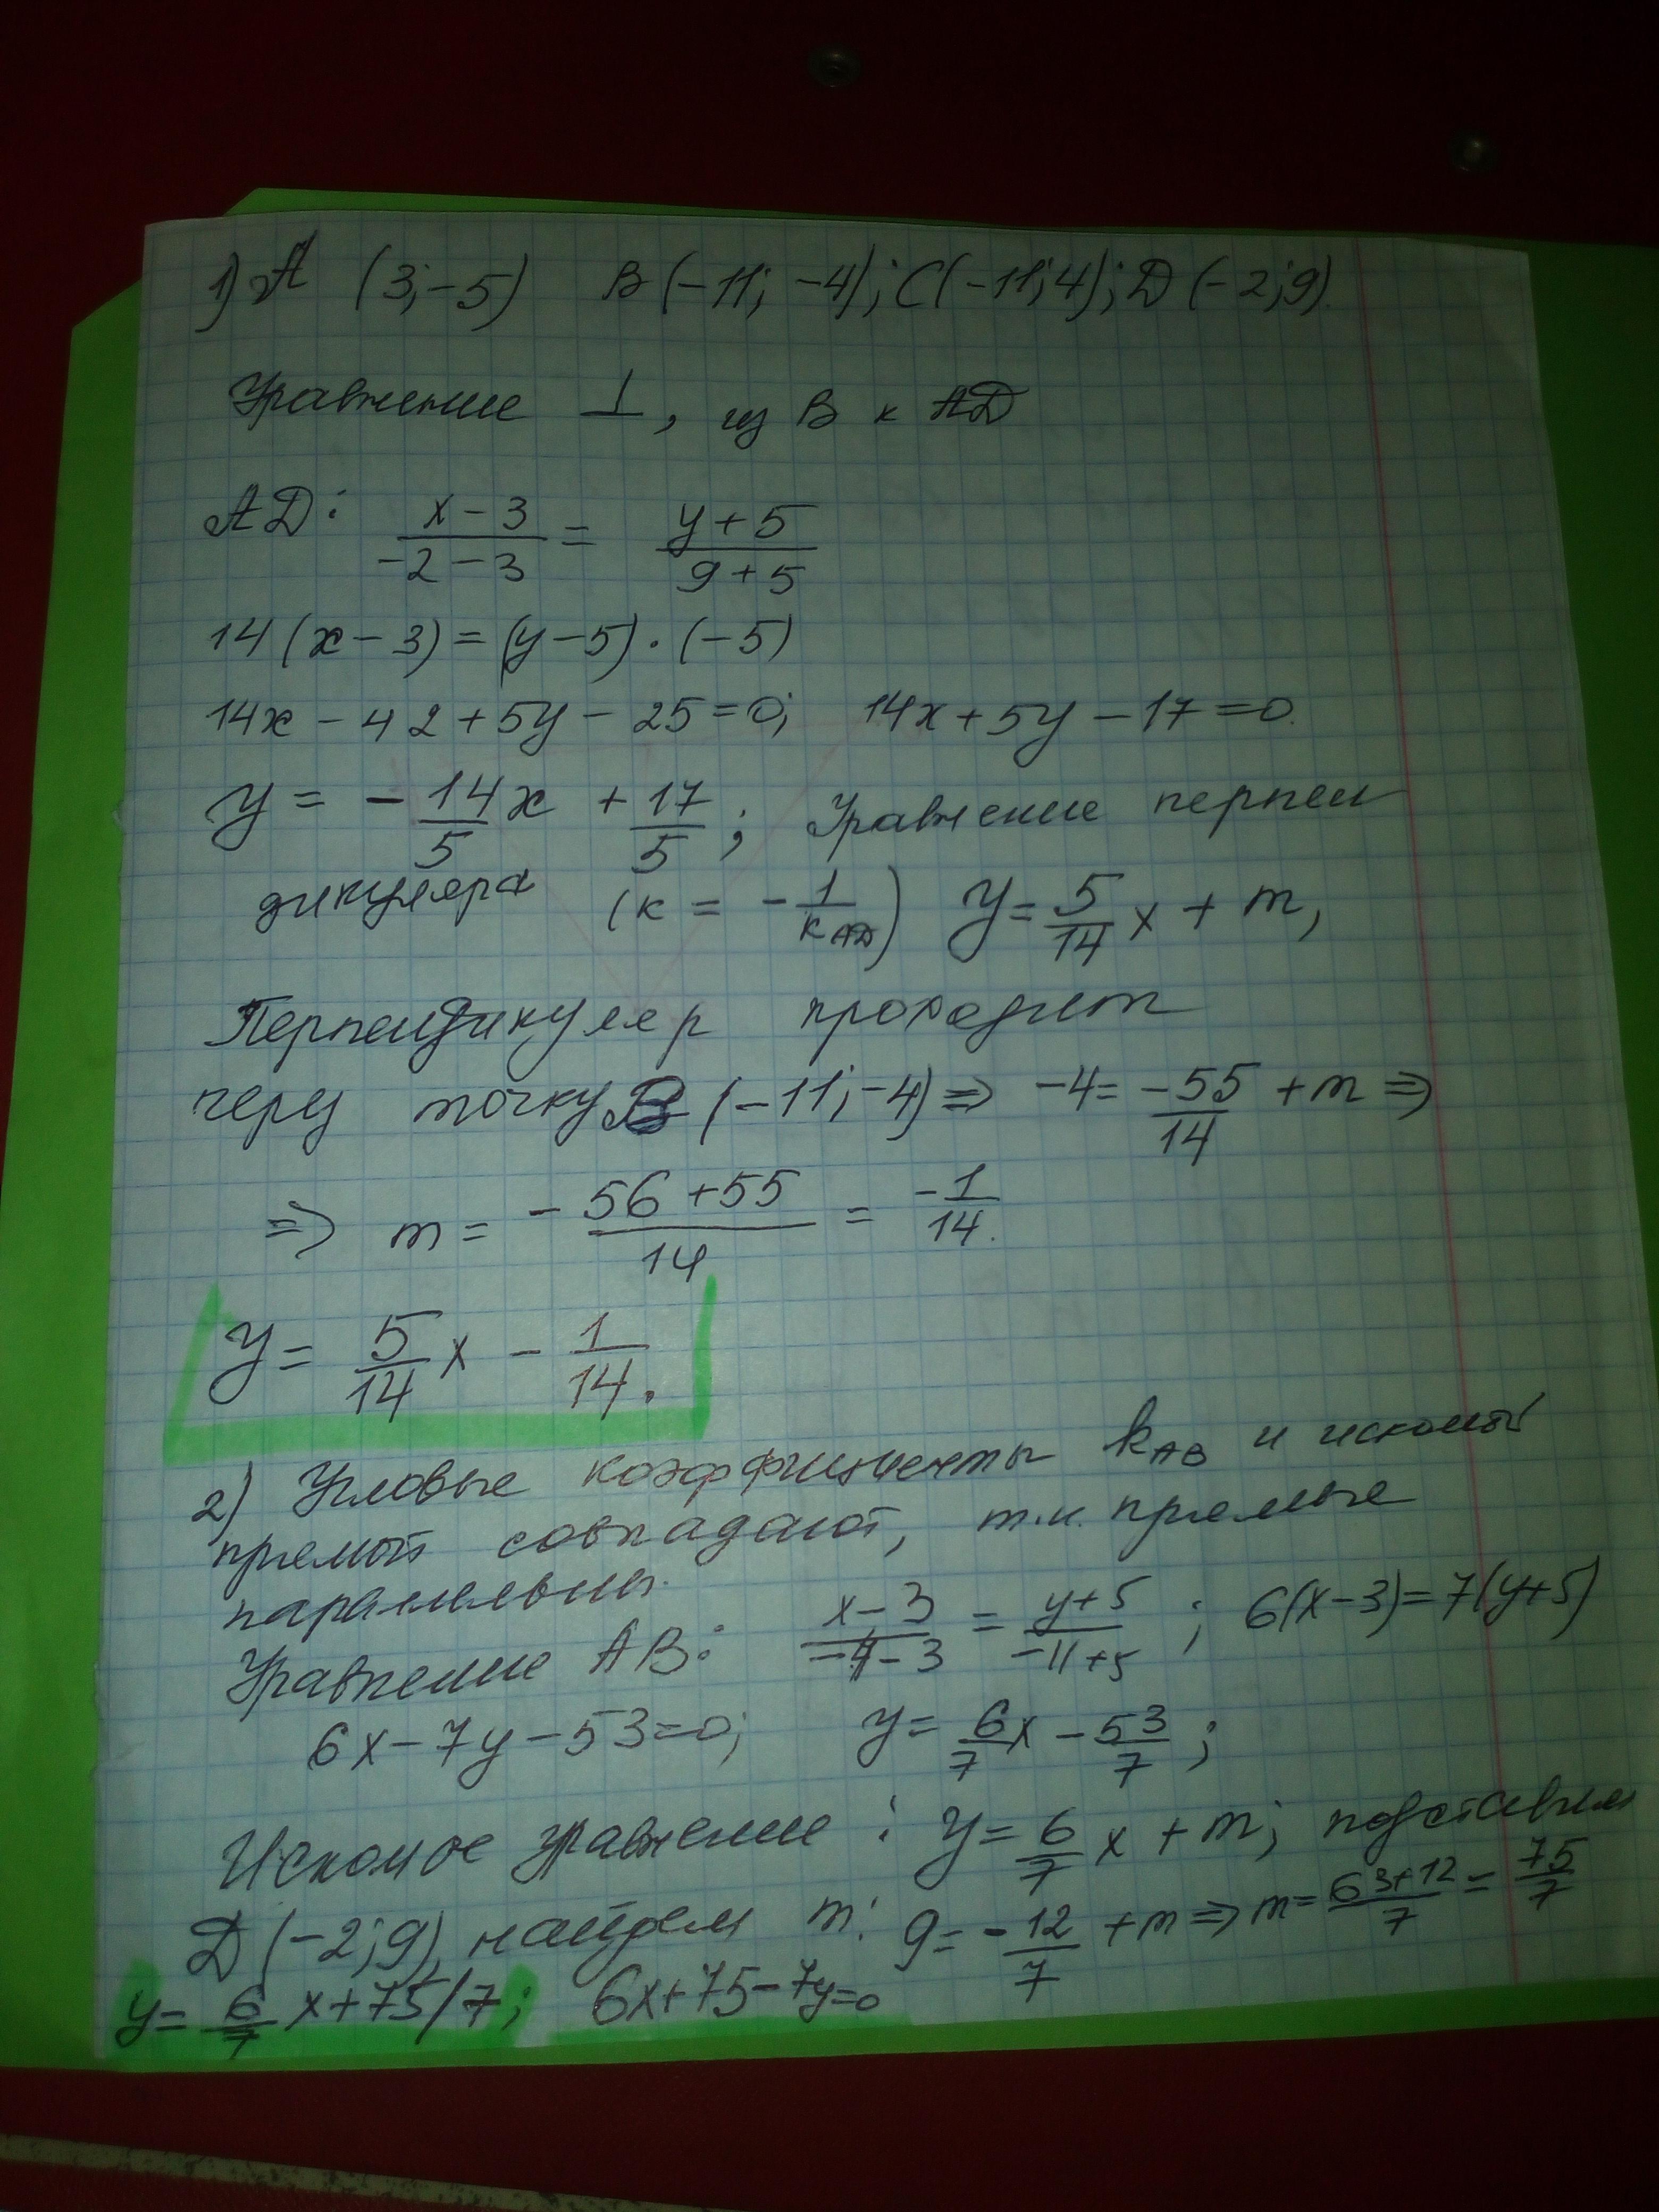 1) A (3; -5) B (-11; -4); C(-11; 4); D (-2; 9).
Уравнение ⊥, из B к AD
AD: (x-3)/(-2-3) = (y+5)/(9+5)
14(x-3)=(y-5)·(-5)
14x-42+5y-25=0; 14x+5y-17=0.
y = -14/5 x + 17/5; Уравнение перпен
дикуляра (к = -1/к_AD) y = 5/14 x + m,
Перпендикуляр проходит
через точку B (-11; -4) ⇒ -4 = -55/14 + m ⇒
⇒ m = (-56+55)/14 = -1/14.
y = 5/14 x - 1/14.
2) Угловые коэффициенты k_AB и искомой
прямой совпадают, т.к. прямые
параллельны.
Уравнение AB: (x-3)/(-4-3) = (y+5)/(-11+5); 6(x-3)=7(y+5)
6x-7y-53=0; y = 6/7 x - 53/7;
Искомое уравнение: y = 6/7 x + m; подставим
D (-2; 9), найдем m: 9 = -12/7 + m ⇒ m = (63+12)/7 = 75/7
y = 6/7 x + 75/7; 6x+75-7y=0